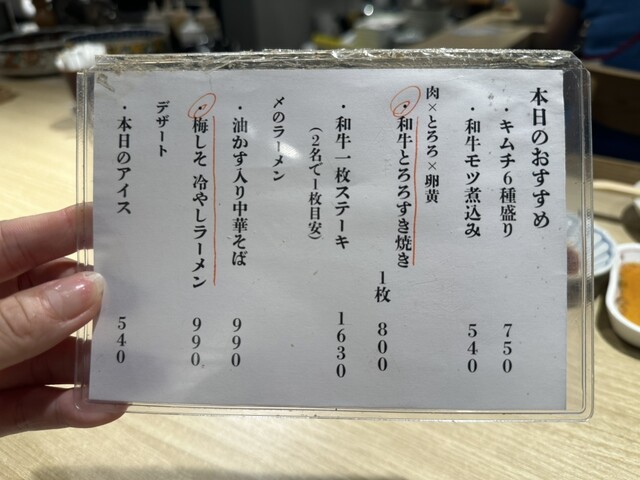 本日のおすすめ
・キムチ6種盛り 750
・和牛モツ煮込み 540
肉×とろろ×卵黄
・和牛とろろすき焼き 1枚 800
・和牛一枚ステーキ 1630
(2名で1枚目安)
〆のラーメン
・油かす入り中華そば 990
・梅しそ 冷やしラーメン 990
デザート
・本日のアイス 540